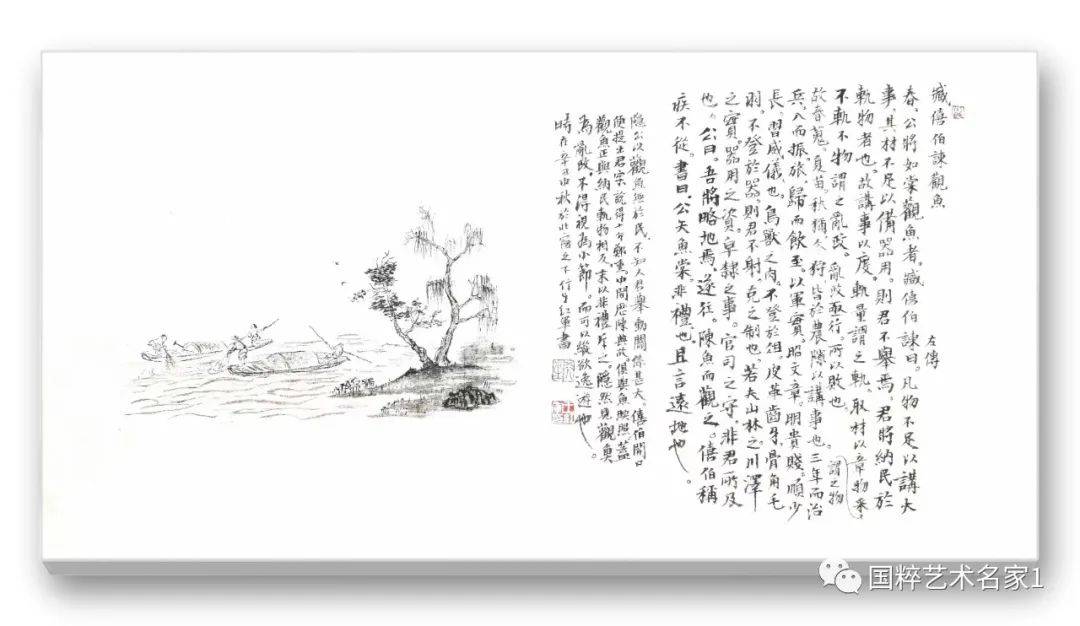 臧僖伯諫觀魚
左傳
春，公將如棠觀魚者。臧僖伯諫曰。凡物不足以講大
事，其材不足以備器用。則君不舉焉。君將納民於
軌物者也。故講事以度。軌量謂之軌。取材以章物采，謂之物
不軌不物謂之亂政。亂政亟行。所以敗也。
故春蒐。夏苗。秋獮冬狩。皆於農隙以講事也。三年而治
兵。入而振旅，歸而飲至。以軍實。昭文章。明貴賤。順少
長。習威儀也。鳥獸之肉。不登於俎。皮革齒牙。骨角毛
羽。不登於器，則君不射。之制也。若夫山林之川澤
之實。器用之資。皁隸之事。官司之守。非君所及
也。公曰。吾將略地焉。遂往。陳魚而觀之。僖伯稱
疾不從。書曰，公矢魚棠。非禮也。且言遠地也。
隱公以觀魚無於民，不知人君舉動關係甚大。僖伯開口
便提出君字。說得十分鄭重。中間歷陳典故。俱與魚照。蓋
觀魚正與納民軌物相反。末以非禮斥之。隱然見觀魚
為亂政。不得視為小節。而可以縱欲逸遊也。
時在辛丑中秋於北窗之下紅軍書
国粹艺术名家1